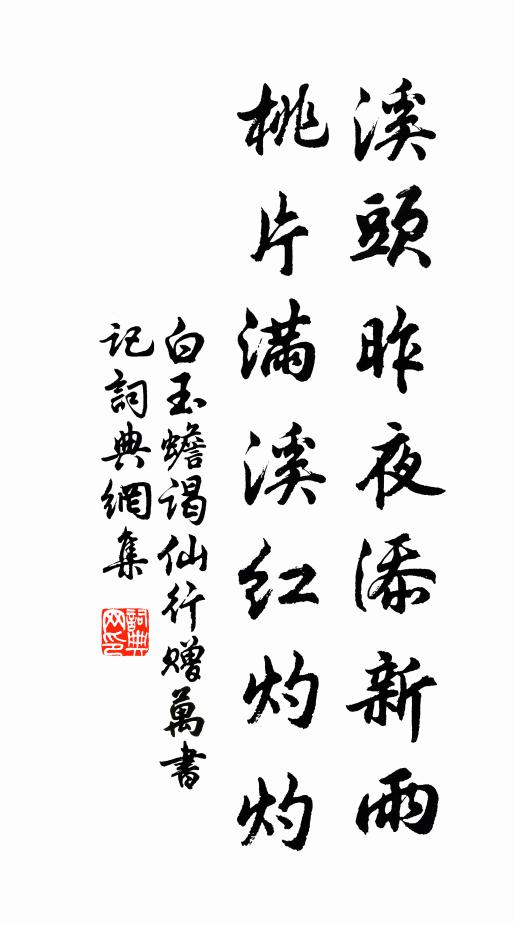 溪頭昨夜添新雨
桃片滿溪紅灼灼
白玉蟾謁仙行贈萬書
記詞典網集
詞典網印